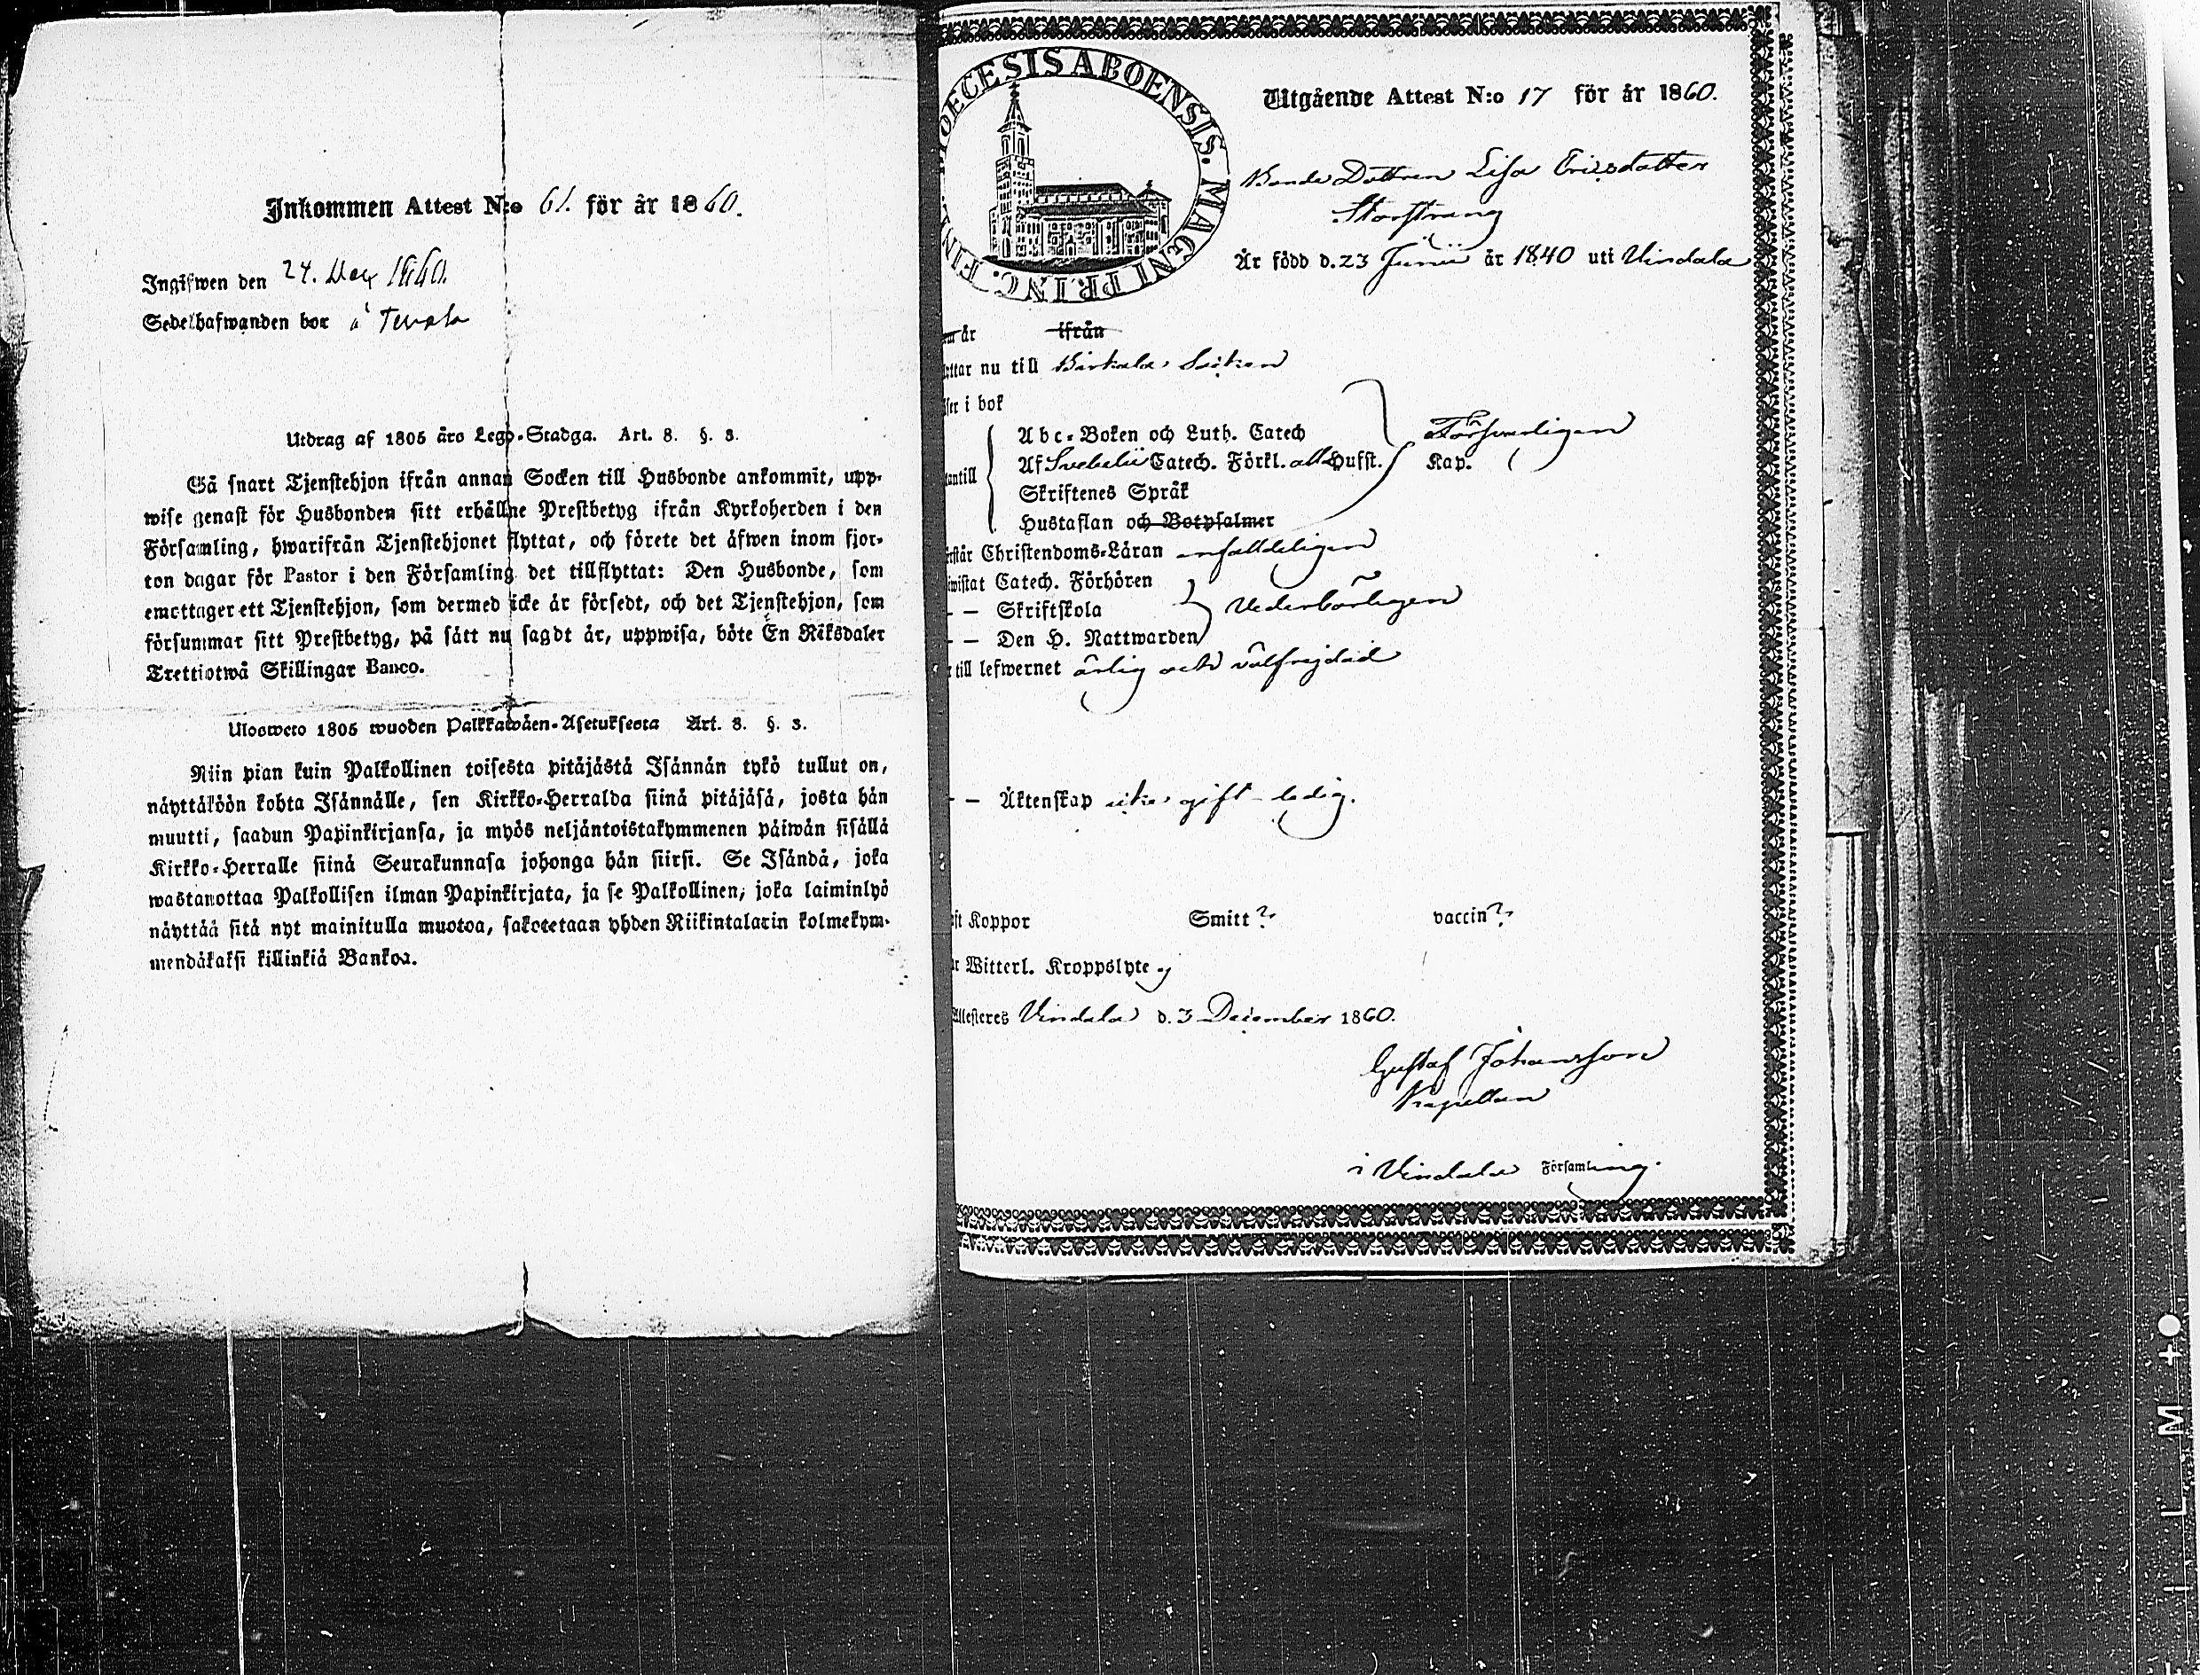 Inkommen Attest N:o 61. för år 1860.
Ingifwen den 24. Dec 1860.
Sedelhafwanden bor å
Utdrag af 1805 års Lego-Stadga. Art. 8. §. 3.
Så snart Tjenstehjon ifrån annan Socken till Husbonde ankommit, upp-
wise genast för Husbonden sitt erhållne Prestbetyg ifrån Kyrkoherden i den
Församling, hwarifrån Tjenstehjonet flyttat, och förete det äfwen inom fjor-
ton dagar för Pastor i den Församling det tillflyttat: Den Husbonde, som
emottager ett Tjenstehjon, som dermed icke är försedt, och det Tjenstehjon, som
försummar sitt Prestbetyg, på sätt nu sagdt är, uppwisa, böte En Riksdaler
Trettiotwå Skillingar Banco.
Ulosweto 1805 wuoden Palkkawäen-Asetuksesta Art. 8. §. 3.
Niin pian kuin Palkollinen toisesta pitäjästä Isännän tykö tullut on,
näyttäköön kohta Isännälle, sen Kirkko-Herralda siinä pitäjäsä, josta hän
muutti, saadun Papinkirjansa, ja myös neljäntoistakymmenen päiwän sisällä
Kirkko-Herralle siinä Seurakunnasa johonga hän siirsi. Se Isändä, joka
wastanottaa Palkollisen ilman Papinkirjata, ja se Palkollinen, joka laiminlyö
näyttää sitä nyt mainitulla muotoa, sakotetaan yhden Riikintalarin kolmekym-
mendäkaksi killinkiä Bankoa.
DIOECESIS ABOENSIS. MAGNI PRINC. FIN
Utgående Attest N:o 17 för år 1860.
Bonde Dottren Lisa Ericsdotter
Storstrang
Är född d. 23 Junii år 1840 uti Vindala
år ifrån
ttar nu till Birkala Socken
ser i bok
Abc-Boken och Luth. Catech Försvarligen
antill Af Svebelii Catech. Förkl. alla Hufst. Kap.
Skriftenes Språk
Hustaflan och Botpsalmer
rstår Christendoms-Läran enfalldeligen
iwistat Catech. Förhören
— — Skriftskola Vederbörligen
— — Den H. Nattwarden
till lefwernet ärlig och välfrejdad
— — Äktenskap icke gift - ledig.
ft Koppor Smitt ? vaccin ?
r Witterl. Kroppslyte ej
Attesteres Vindala d. 3 December 1860.
Gustaf Johansson
Kapellan
i Vindala Församling.